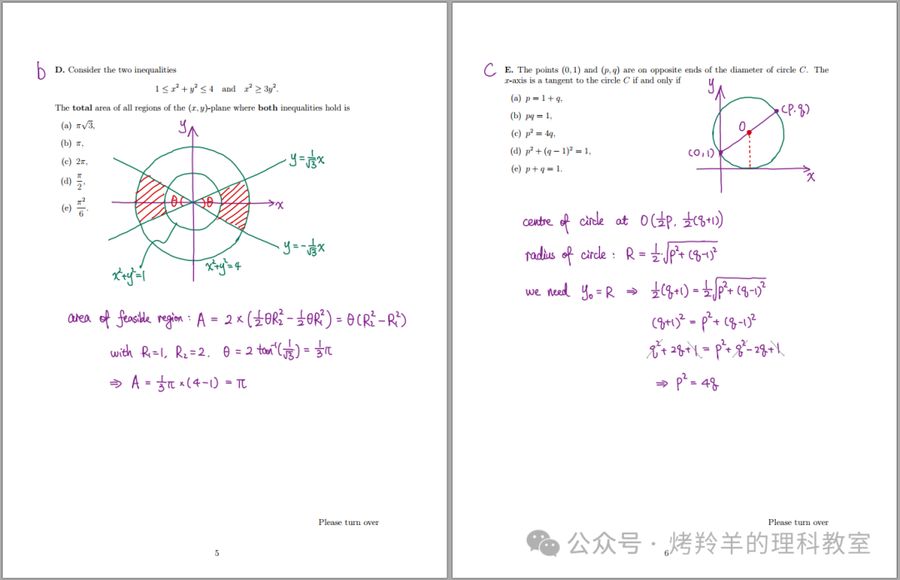 b D. Consider the two inequalities
1 ≤ x² + y² ≤ 4 and x² ≥ 3y².
The total area of all regions of the (x, y)-plane where both inequalities hold is
(a) π√3,
(b) π,
(c) 2π,
(d) π/2,
(e) π²/6.
y
y = 1/√3 x
θ θ
x
y = -1/√3 x
x²+y²=1
x²+y²=4
area of feasible region: A = 2 × (½θR₂² - ½θR₁²) = θ(R₂² - R₁²)
with R₁=1, R₂=2. θ = 2 tan⁻¹(1/√3) = ⅓π
⇒ A = ⅓π × (4-1) = π
Please turn over
5
C E. The points (0, 1) and (p, q) are on opposite ends of the diameter of circle C. The
x-axis is a tangent to the circle C if and only if
(a) p = 1 + q,
(b) pq = 1,
(c) p² = 4q,
(d) p² + (q − 1)² = 1,
(e) p + q = 1.
y
(p.q)
O
(0,1)
x
centre of circle at O(½p, ½(q+1))
radius of circle: R = ½√(p²+(q-1)²)
we need y₀ = R ⇒ ½(q+1) = ½√(p²+(q-1)²)
(q+1)² = p²+(q-1)²
q²+2q+1 = p²+q²-2q+1
⇒ p² = 4q
Please turn over
6
公众号 · 烤羚羊的理科教室